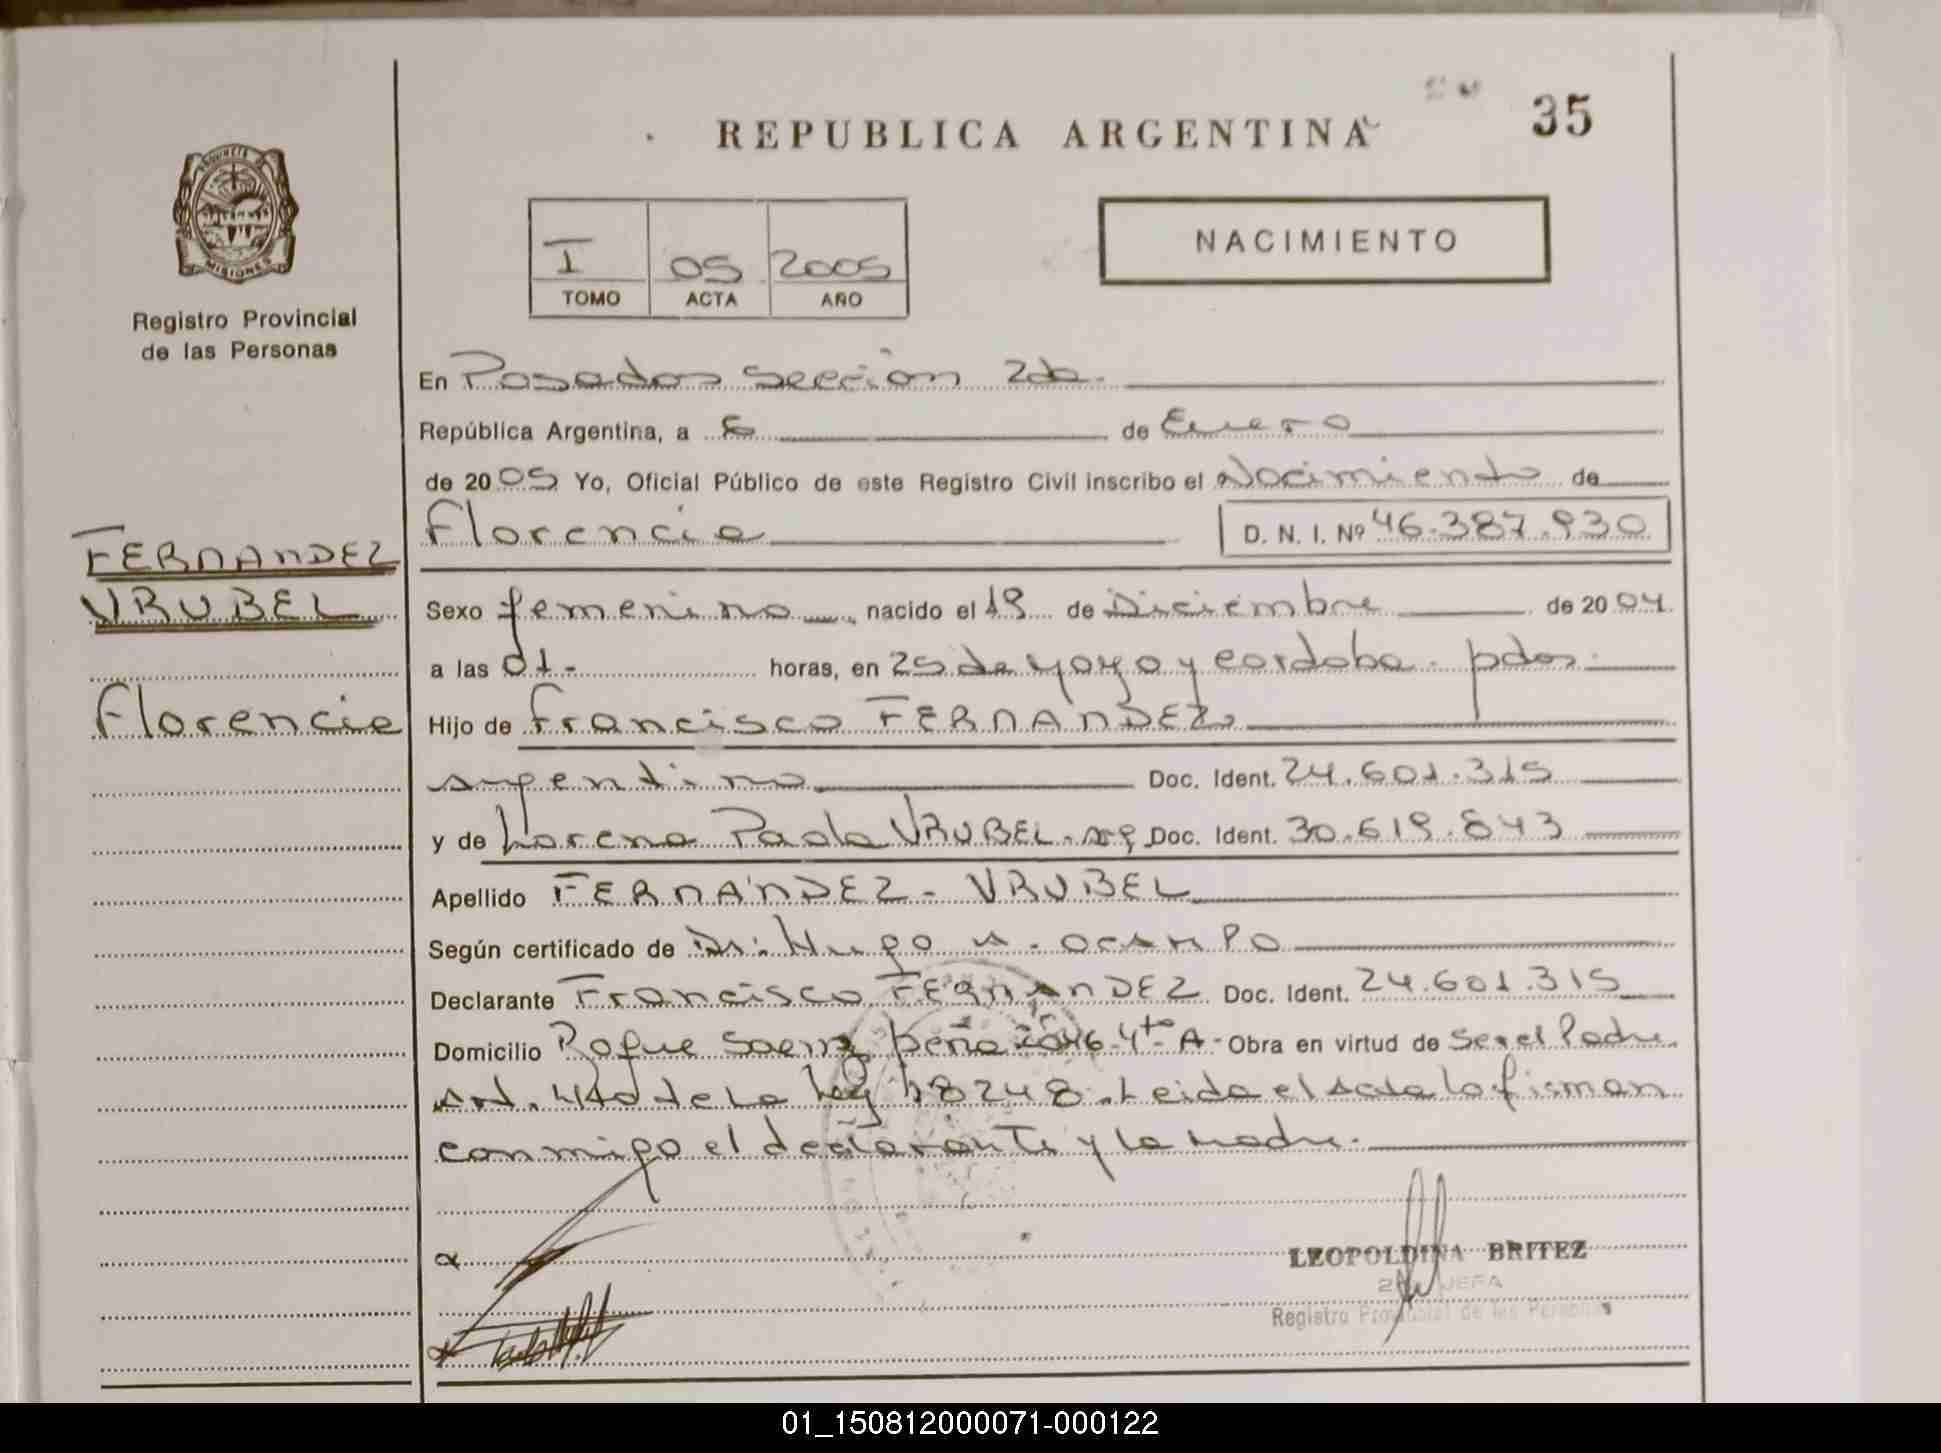 35
REPUBLICA ARGENTINA
PROVINCIA DE
MISIONES
Registro Provincial
de las Personas
I 05 2005
TOMO ACTA AÑO
NACIMIENTO
En Posadas Sección 2da.
República Argentina, a 6 de Enero
de 2005 Yo, Oficial Público de este Registro Civil inscribo el Nacimiento de
Florencia D. N. I. Nº 46.387.930
FERNANDEZ
VRUBEL
Florencia
Sexo femenino nacido el 19 de Diciembre de 2004
a las 01- horas, en 25 de mayo y cordoba. pdas.
Hijo de Francisco FERNANDEZ
argentino Doc. Ident. 24.601.315
y de Lorena Paola VRUBEL - arg Doc. Ident. 30.619.843
Apellido FERNANDEZ - VRUBEL
Según certificado de Dr. Hugo A. OCAMPO
Declarante Francisco FERNANDEZ Doc. Ident. 24.601.315
Domicilio Roque Saenz peña 2046 4to A - Obra en virtud de Ser el Padre
Art. 4to de La Ley 18248. Leida el Acta la firman
conmigo el declarante y la madre.
LEOPOLDINA BRITEZ
JEFA
Registro Provincial de las Personas
01_150812000071-000122